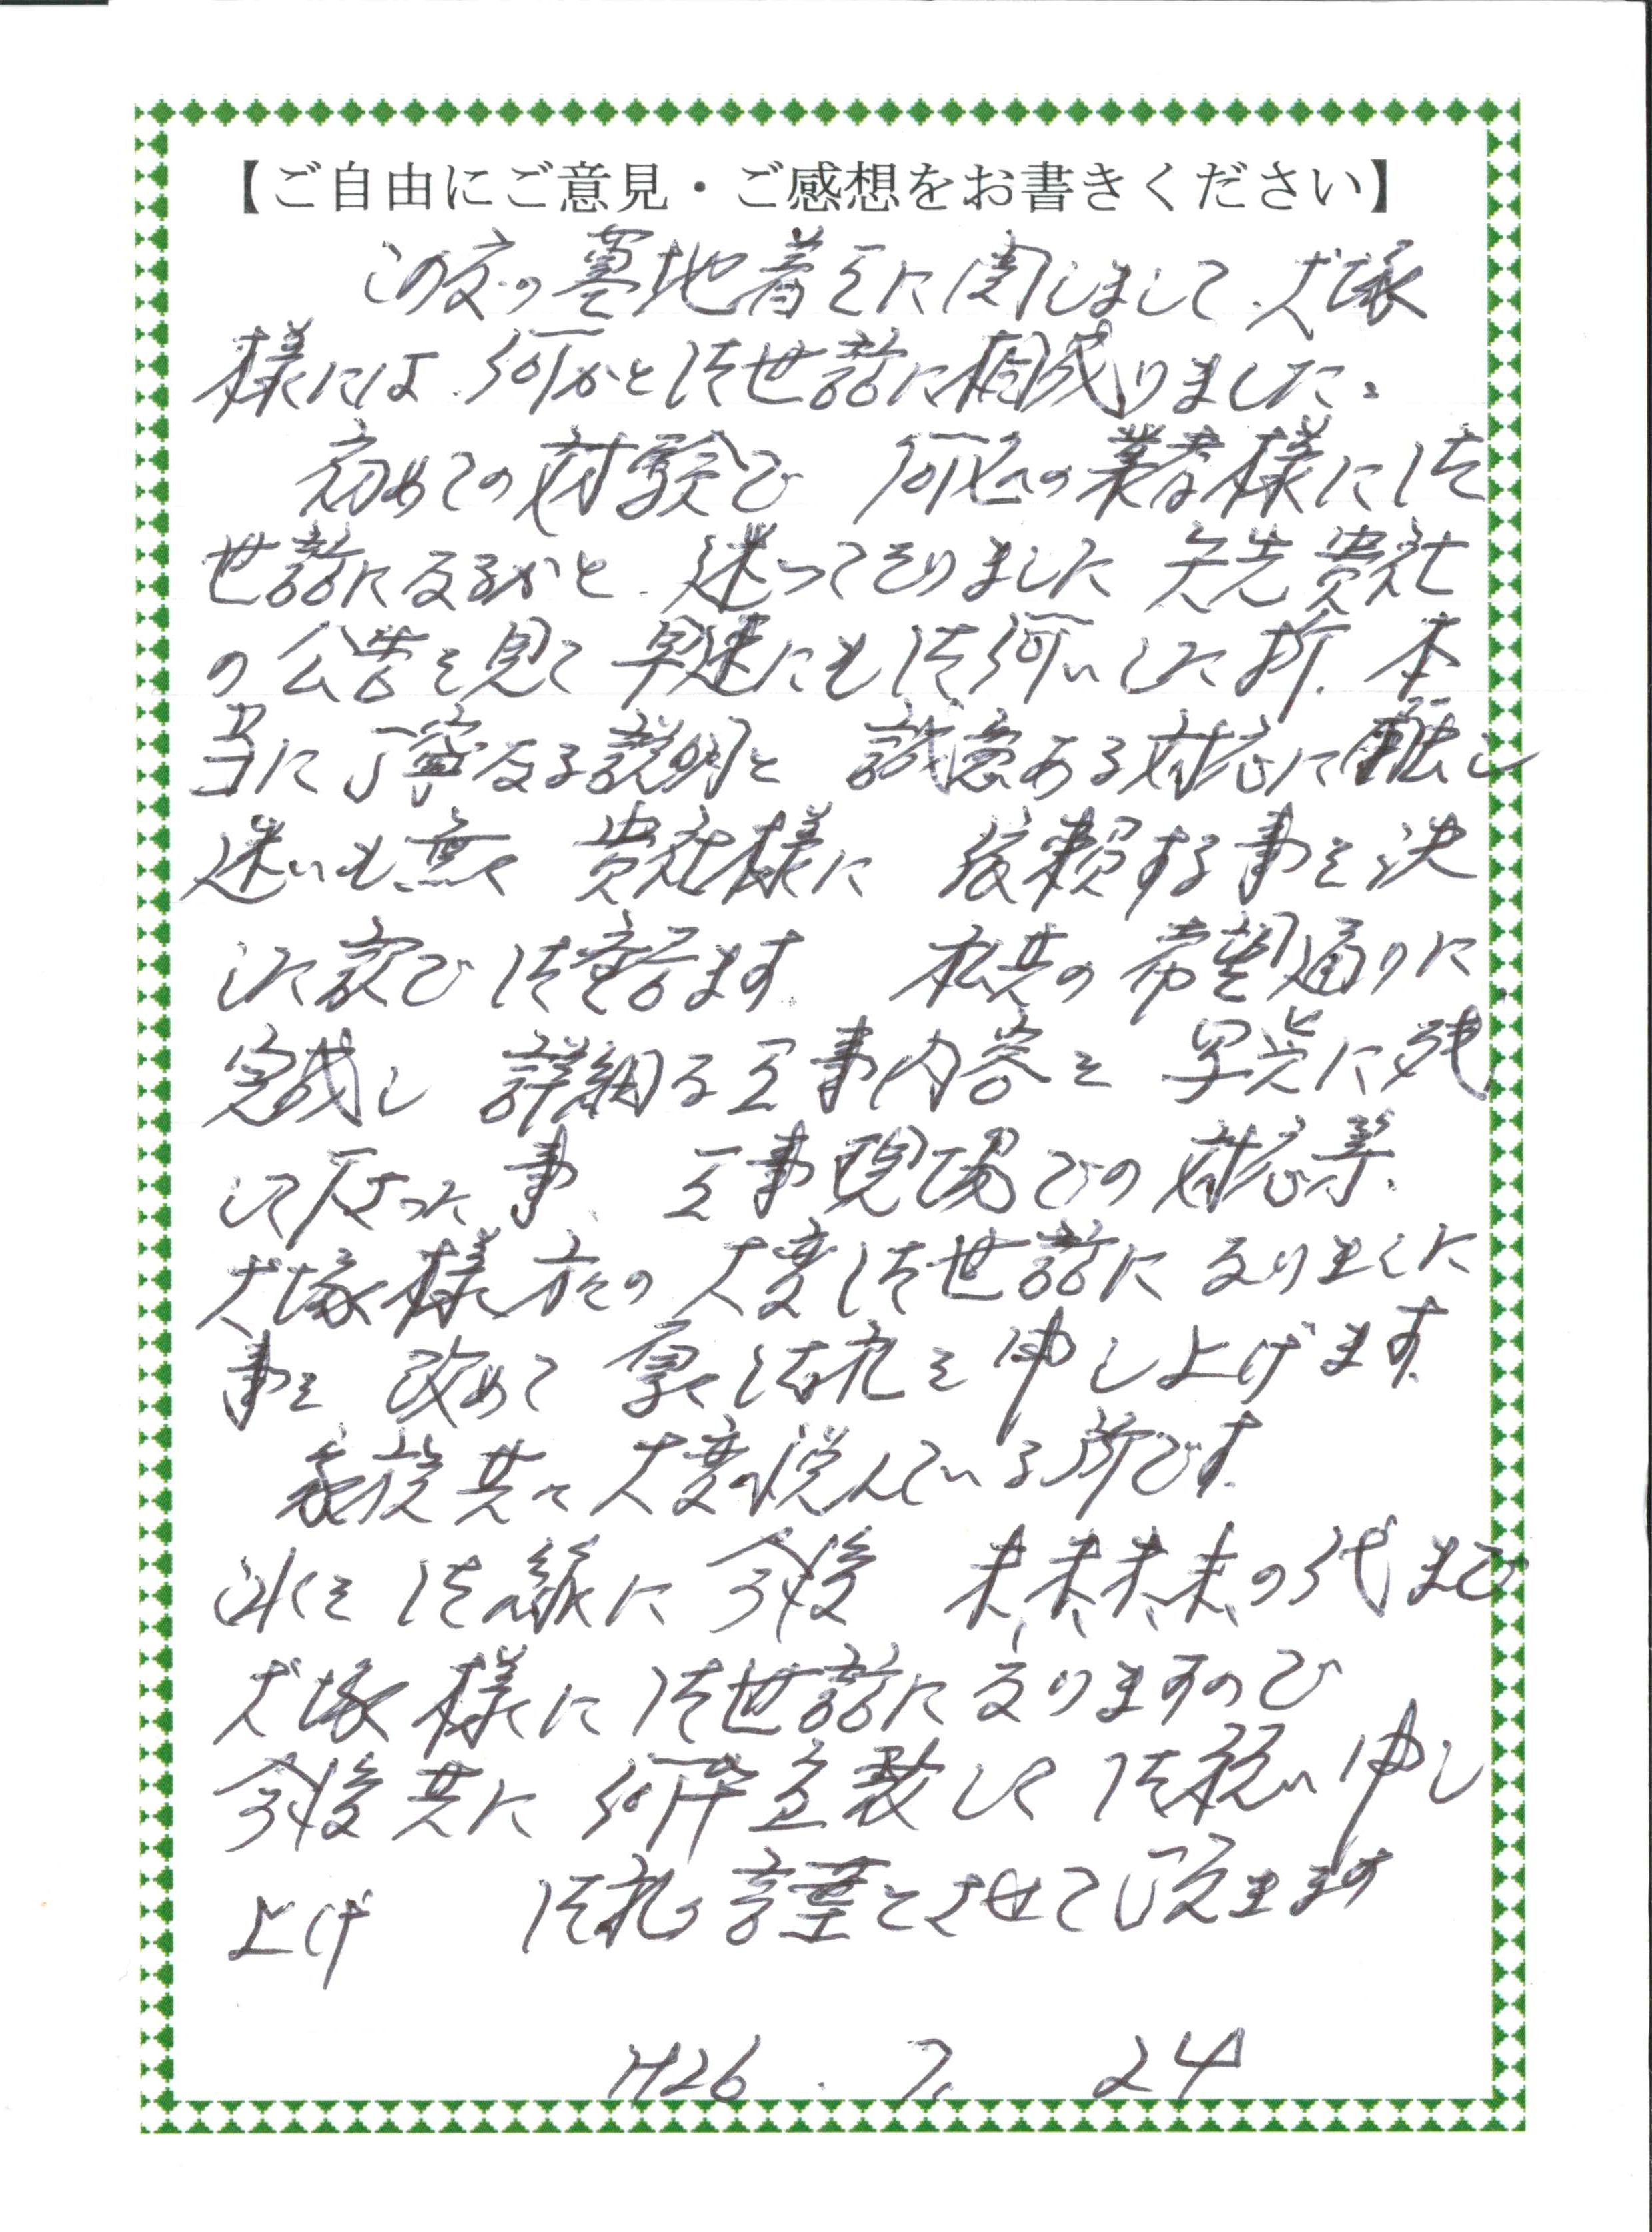 【ご自由にご意見・ご感想をお書きください】
この度の墓地着工に関しまして、犬塚
様には、何かと御世話に相成りました。
初めての対験で 何処の業者様に御
世話になるかと、迷っておりました 矢先 貴社
の公告を見て 早速にも御伺いした折、本
当に丁寧なる説明と 誠意ある対応に
迷いも無く 貴社様に 依頼する事を決
した訳で御座います。 私共の希望通りに
完成し 詳細な工事内容を 写真に残
して下さった事、工事現場での対応等、
犬塚様方の 大変御世話に なりました
事を 改めて 厚く御礼を申し上げます。
家族共々大変悦んでいる所です。
これを御縁に 今後 末、末、末、末、の代まで
犬塚様に 御世話に なりますので
今後共に 何卒宜敷しく 御願い申し
上げ 御礼の言葉とさせて頂きます
H26. 7. 24